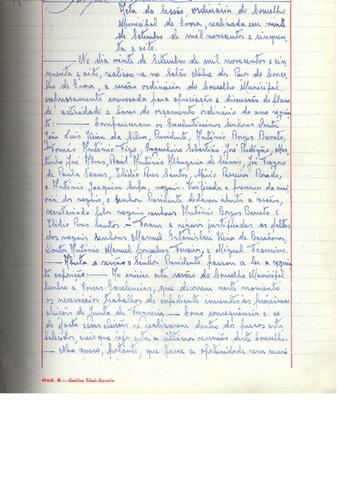 Acta da sessão ordinária do Conselho
Municipal de Évora, realizada em vinte
de Setembro de mil novecentos e cinquen-
ta e oito.
— No dia vinte de Setembro de mil novecentos e cin-
quenta e oito, realizou-se no Salão Nobre dos Paços do Conce-
lho de Évora, a sessão ordinária do Conselho Municipal,
expressamente convocada para apreciação e discussão do plano
de actividade e bases do orçamento ordinário do ano seguin-
te. — Compareceram os Excelentíssimos senhores Doutor
João Luís Vieira da Silva, Presidente, António Borges Barreto,
Tomás António Fizo, Engenheiro Sebastião José Perdigão, Mar-
tinho José Alves, Raúl António
de Paula Soares, Elídio Pires Santos, Mário Pereira Rosado,
e António Joaquim vogais. Verificada a presença da maio-
ria dos vogais, o senhor Presidente declarou aberta a sessão,
secretariada pelos vogais senhores António Borges Barreto e
Elídio Pires Santos. — Foram a seguir justificadas as faltas
dos vogais senhores Manuel Estanislau Vieira de Barahona,
Doutor António Manuel Gonçalves Ferreira, e Miguel Fernandes.
— Aberta a sessão o Senhor Presidente passou a ler a seguin-
te exposição: — Ao iniciar esta sessão do Conselho Municipal
lembro a Vossas Excelências, que decorrem neste momento
os necessários trabalhos de expediente inerentes às próximas
eleições de Junta de Freguesia. — Como consequência e se
de facto essas eleições se realizarem dentro dos prazos esta-
belecidos, creio que seja esta a última reunião deste Conselho.
— Não quero, portanto, que passe a oportunidade sem mani-
Mod. 6 —